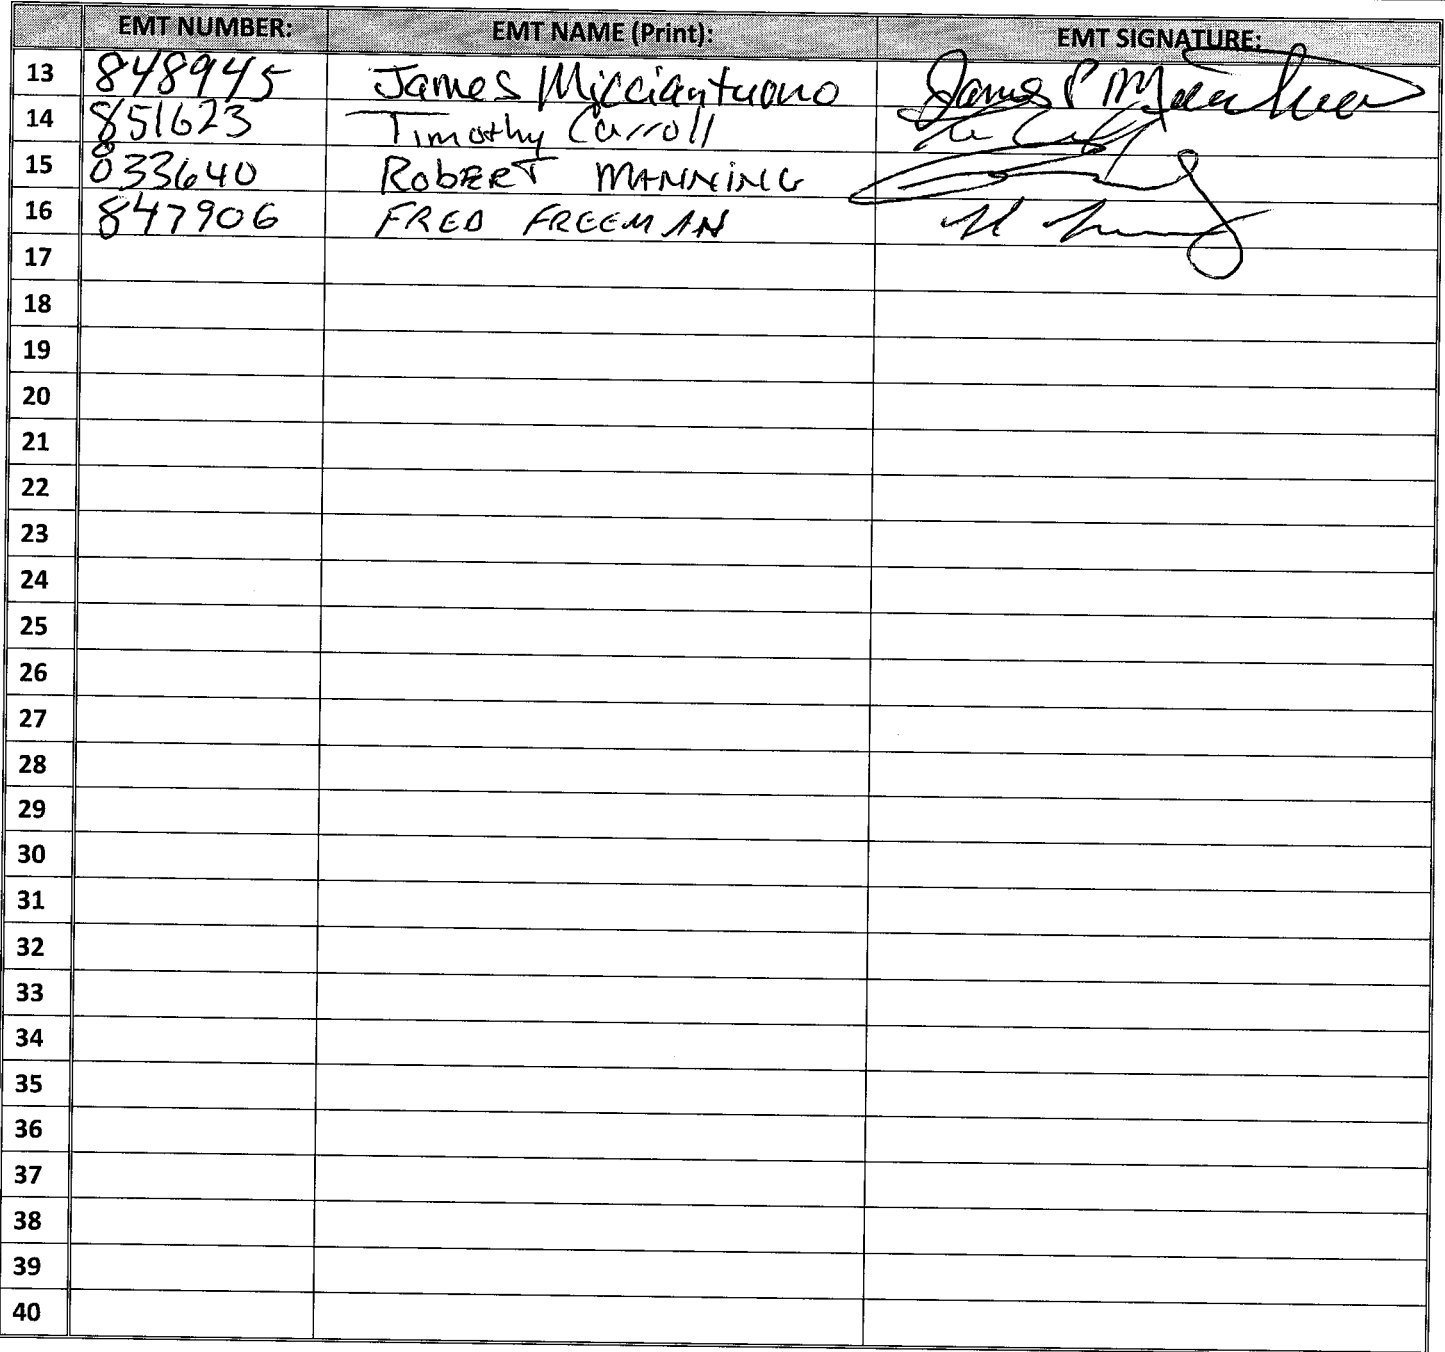 EMT NUMBER: EMT NAME (Print): EMT SIGNATURE:
13 848945 James Micciantuono James P
14 851623 Timothy Carroll
15 833640 ROBERT MANNING
16 847906 FRED FREEMAN
17
18
19
20
21
22
23
24
25
26
27
28
29
30
31
32
33
34
35
36
37
38
39
40